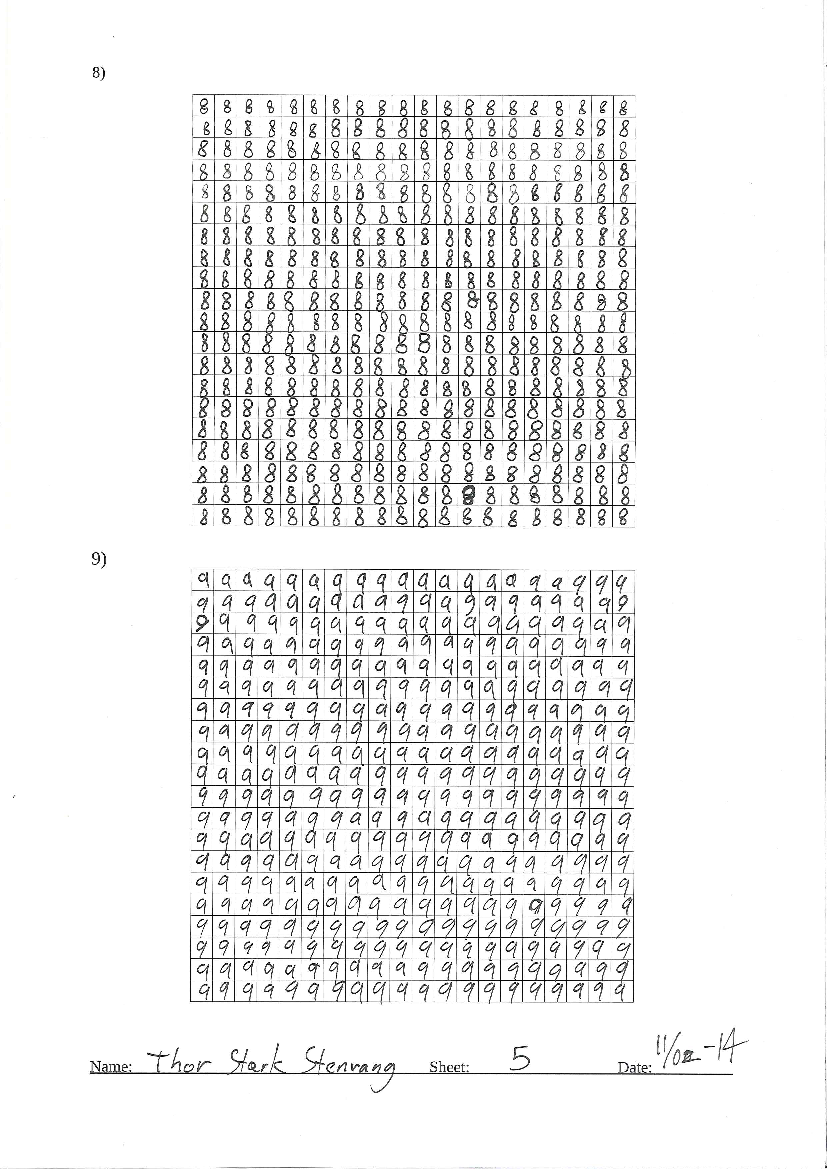 8)
8 8 8 8 8 8 8 8 8 8 8 8 8 8 8 8 8 8 8 8
8 8 8 8 8 8 8 8 8 8 8 8 8 8 8 8 8 8 8 8
8 8 8 8 8 8 8 8 8 8 8 8 8 8 8 8 8 8 8 8
8 8 8 8 8 8 8 8 8 8 8 8 8 8 8 8 8 8 8 8
8 8 8 8 8 8 8 8 8 8 8 8 8 8 8 8 8 8 8 8
8 8 8 8 8 8 8 8 8 8 8 8 8 8 8 8 8 8 8 8
8 8 8 8 8 8 8 8 8 8 8 8 8 8 8 8 8 8 8 8
8 8 8 8 8 8 8 8 8 8 8 8 8 8 8 8 8 8 8 8
8 8 8 8 8 8 8 8 8 8 8 8 8 8 8 8 8 8 8 8
8 8 8 8 8 8 8 8 8 8 8 8 8 8 8 8 8 8 8 8
8 8 8 8 8 8 8 8 8 8 8 8 8 8 8 8 8 8 8 8
8 8 8 8 8 8 8 8 8 8 8 8 8 8 8 8 8 8 8 8
8 8 8 8 8 8 8 8 8 8 8 8 8 8 8 8 8 8 8 8
8 8 8 8 8 8 8 8 8 8 8 8 8 8 8 8 8 8 8 8
8 8 8 8 8 8 8 8 8 8 8 8 8 8 8 8 8 8 8 8
8 8 8 8 8 8 8 8 8 8 8 8 8 8 8 8 8 8 8 8
8 8 8 8 8 8 8 8 8 8 8 8 8 8 8 8 8 8 8 8
8 8 8 8 8 8 8 8 8 8 8 8 8 8 8 8 8 8 8 8
8 8 8 8 8 8 8 8 8 8 8 8 8 8 8 8 8 8 8 8
8 8 8 8 8 8 8 8 8 8 8 8 8 8 8 8 8 8 8 8
9)
9 9 9 9 9 9 9 9 9 9 9 9 9 9 9 9 9 9 9 9
9 9 9 9 9 9 9 9 9 9 9 9 9 9 9 9 9 9 9 9
9 9 9 9 9 9 9 9 9 9 9 9 9 9 9 9 9 9 9 9
9 9 9 9 9 9 9 9 9 9 9 9 9 9 9 9 9 9 9 9
9 9 9 9 9 9 9 9 9 9 9 9 9 9 9 9 9 9 9 9
9 9 9 9 9 9 9 9 9 9 9 9 9 9 9 9 9 9 9 9
9 9 9 9 9 9 9 9 9 9 9 9 9 9 9 9 9 9 9 9
9 9 9 9 9 9 9 9 9 9 9 9 9 9 9 9 9 9 9 9
9 9 9 9 9 9 9 9 9 9 9 9 9 9 9 9 9 9 9 9
9 9 9 9 9 9 9 9 9 9 9 9 9 9 9 9 9 9 9 9
9 9 9 9 9 9 9 9 9 9 9 9 9 9 9 9 9 9 9 9
9 9 9 9 9 9 9 9 9 9 9 9 9 9 9 9 9 9 9 9
9 9 9 9 9 9 9 9 9 9 9 9 9 9 9 9 9 9 9 9
9 9 9 9 9 9 9 9 9 9 9 9 9 9 9 9 9 9 9 9
9 9 9 9 9 9 9 9 9 9 9 9 9 9 9 9 9 9 9 9
9 9 9 9 9 9 9 9 9 9 9 9 9 9 9 9 9 9 9 9
9 9 9 9 9 9 9 9 9 9 9 9 9 9 9 9 9 9 9 9
9 9 9 9 9 9 9 9 9 9 9 9 9 9 9 9 9 9 9 9
9 9 9 9 9 9 9 9 9 9 9 9 9 9 9 9 9 9 9 9
9 9 9 9 9 9 9 9 9 9 9 9 9 9 9 9 9 9 9 9
Name: Thor Stark Stenvang Sheet: 5 Date: 11/02-14